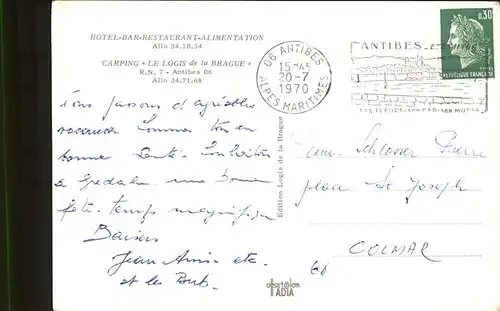 HOTEL-BAR-RESTAURANT-ALIMENTATION
Allo 34.10.34
CAMPING "LE LOGIS de la BRAGUE"
R.N. 7 - Antibes 06
Allo 34.71.68
06 ANTIBES
20-7
1970
ALPES MARITIMES
ANTIBES
0,30
REPUBLIQUE FRANÇAISE
Nous passons d'agréables
vacances. Sommes tous en
bonne Santé. Souhaitez
à une bonne
fête. temps magnifique
Baisers
Jean Annie etc
et les
Edition Logis de la Brague
Schlosser Pierre
place St Joseph
COLMAR
68
offset color
IADIA